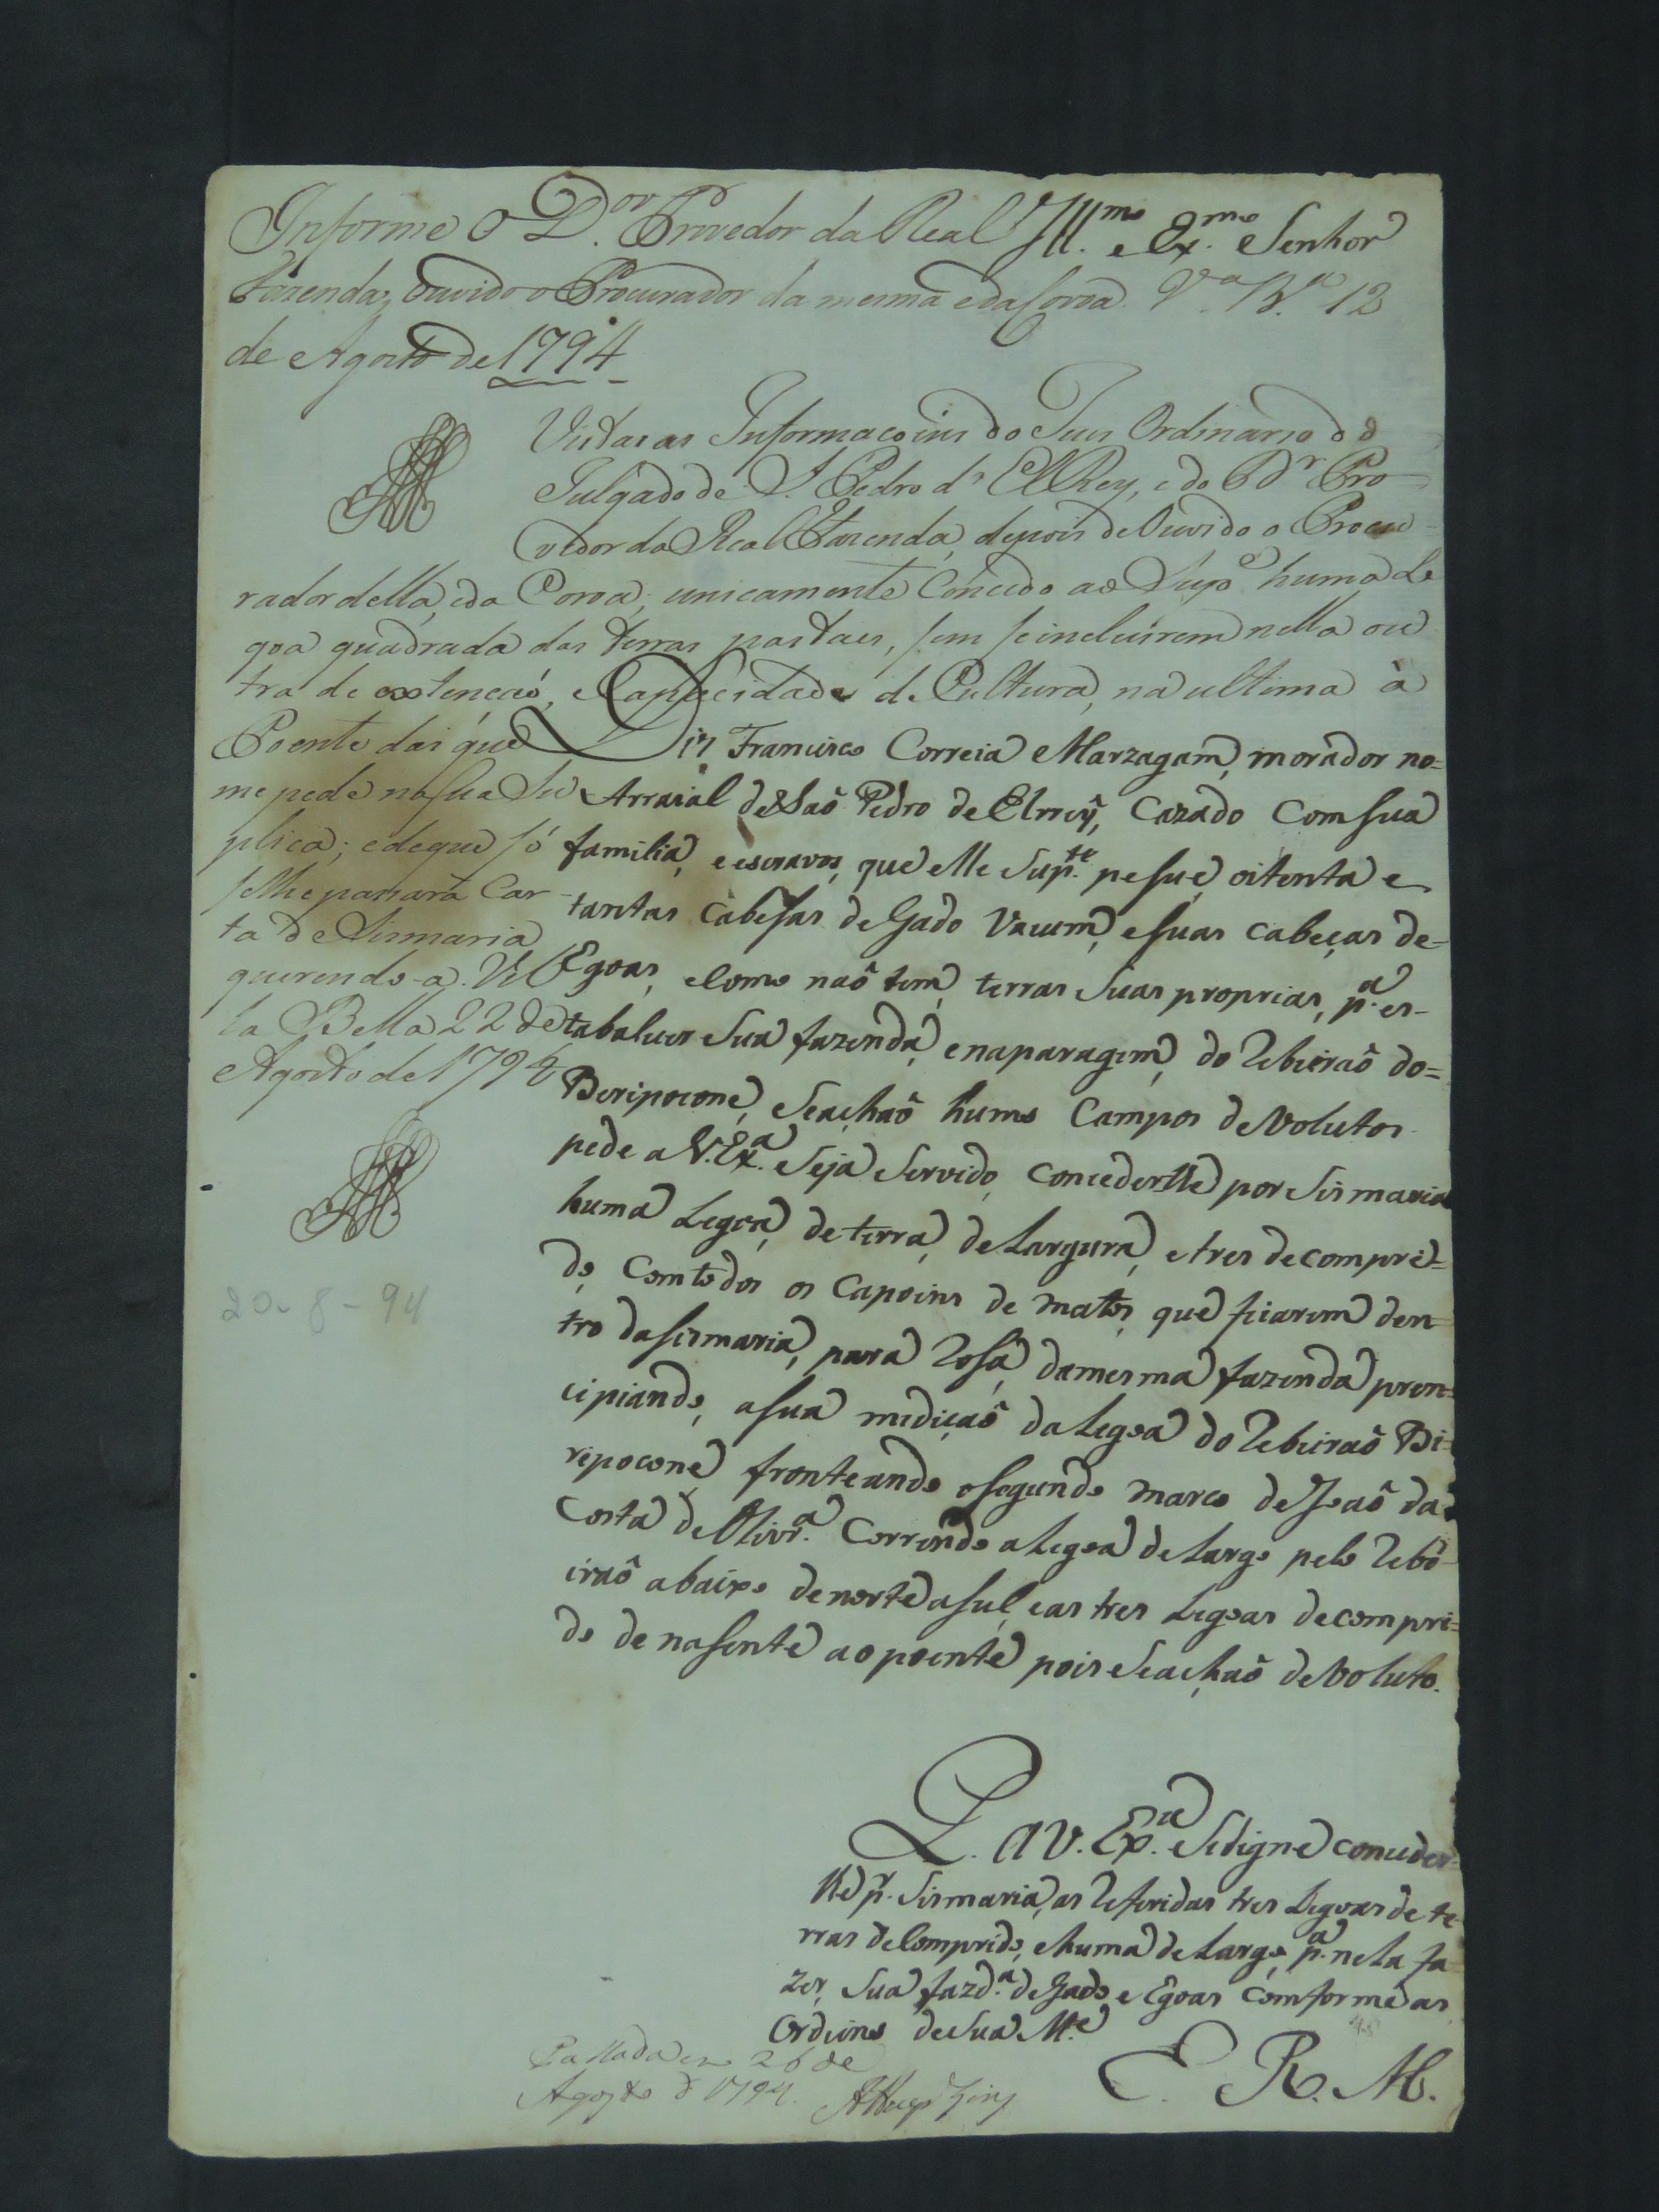 Informe o D.or Provedor da Real
Ill.mo e Ex.mo Senhor
Fazenda, ouvido o Procurador da mesma e da Coroa. V.a B.a 12
de Agosto de 1794
Vistas as Informaçoins do Juis Ordinario do
Julgado de S. Pedro d' ElRey, e do D.r Pro-
vedor da Real Fazenda, depois de Ouvido o Procu-
rador della, e da Coroa; unicamente Concedo ao Sup.e huma le
goa quadrada das terras pastaes, sem se incluirem nella ou
tra de extenção, e Capacidade de Cultura, na ultima à
Poente das que
me pede na sua Su
plica; e de que só
se lhe passará Car-
ta de Sismaria
querendo-a. Vil
la Bella 22 de
Agosto de 1794
20-8-94
Diz Francisco Correia Marzagam, morador no=
Arraial de Saõ Pedro de Elrreÿ, Cazado Com sua
familia, e escravos, que elle Sup.te pesue, oitenta e
tantas Cabesas de Gado Vacum, e suas cabeças de=
Egoas, e Como naõ tem, terras Suas proprias, p.a es-
tabalecer Sua fazenda, e na paragem, do Ribeiraõ do=
Beripocone, Se achaõ huns Campos deVolutos
pede a V.Ex.a Seja Servido, Concederlhe por Sismaria
huma Legoa, de terra, de Largura, e tres de compri=
do, Com todos os Capoins de matos, que ficarem den
tro da sismaria, para Rosa, da mesma fazenda pren=
cipiando, a sua mediçaõ da Legoa do Ribeiraõ Bi=
ripocone fronteando o segundo marco de Joaõ da
Costa de Olivr.a Correndo a Legoa de Largo pelo Ribe
iraõ abaixo de norte a sul, e as tres Legoas de compri=
do de nasente ao poente pois Se achaõ deVoluto.
P. a V. Ex.a Se digne conceder=
lhe p.r Sismaria, as Referidas tres Legoas de te
rras de Comprido, e huma de Largo, p.a nela fa
zer, Sua fazd.a de Gado e Egoas Comforme as
Ordins de Sua M.e
E. R. M.
Passada em 26 de
Agosto d 1794.